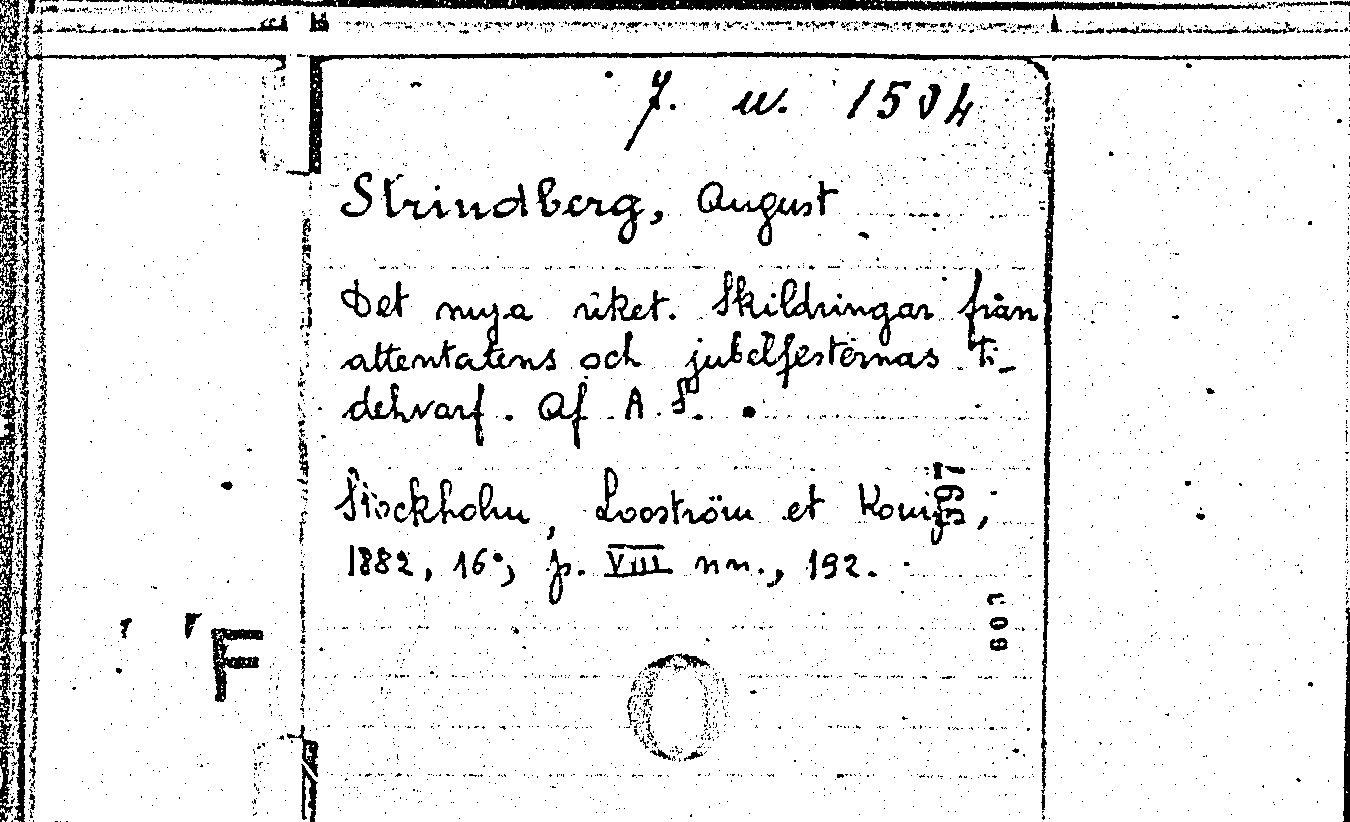 7. w. 1504
Strindberg, August
Det nya riket. Skildringar från
attentatens och jubelfesternas ti-
dehvarf. Af A. S.
Stockholm, Looström et Konip,
1882, 16°, p. VIII nn., 192.
397
109
F